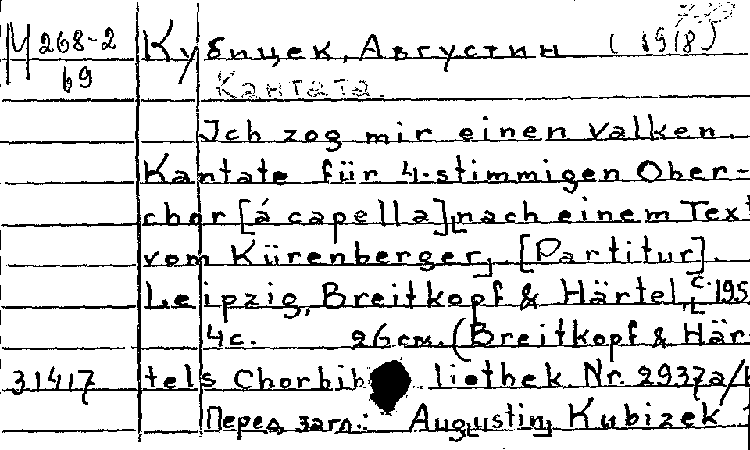 М 268-2
69
Кубицек, Августин (1918)
Кантата.
Ich zog mir einen Valken.
Kantate für 4-stimmigen Ober-
chor [á capella] nach einem Text
vom Kürenberger. [Partitur].
Leipzig, Breitkopf & Härtel, c. 195
4с. 26см. (Breitkopf & Här-
31417 tels Chorbib liothek Nr. 2937a/b
Перед загл.: Augustin Kubizek